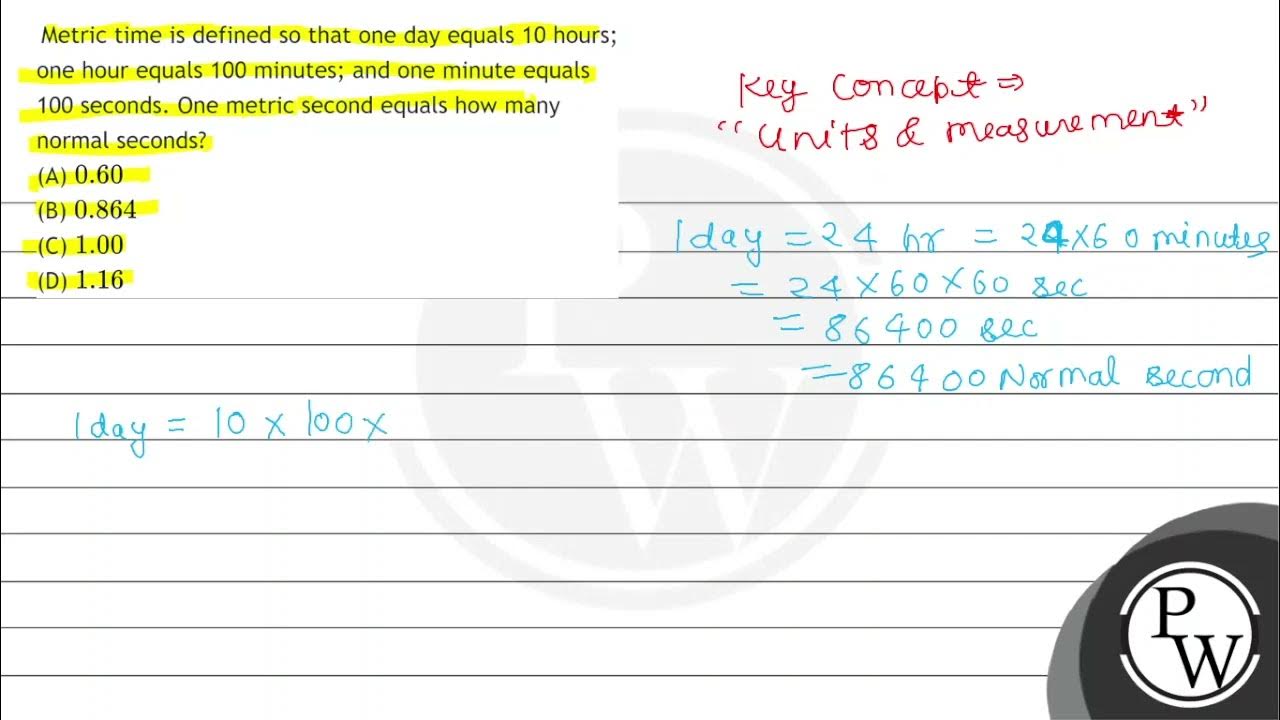 Metric time is defined so that one day equals 10 hours;
one hour equals 100 minutes; and one minute equals
100 seconds. One metric second equals how many
normal seconds?
(A) 0.60
(B) 0.864
(C) 1.00
(D) 1.16
Key Concept ⇒
"Units & measurement"
1 day = 24 hr = 24 × 60 minutes
= 24 × 60 × 60 sec
= 86400 sec
= 86400 Normal second
1 day = 10 × 100 ×
P
W
PW